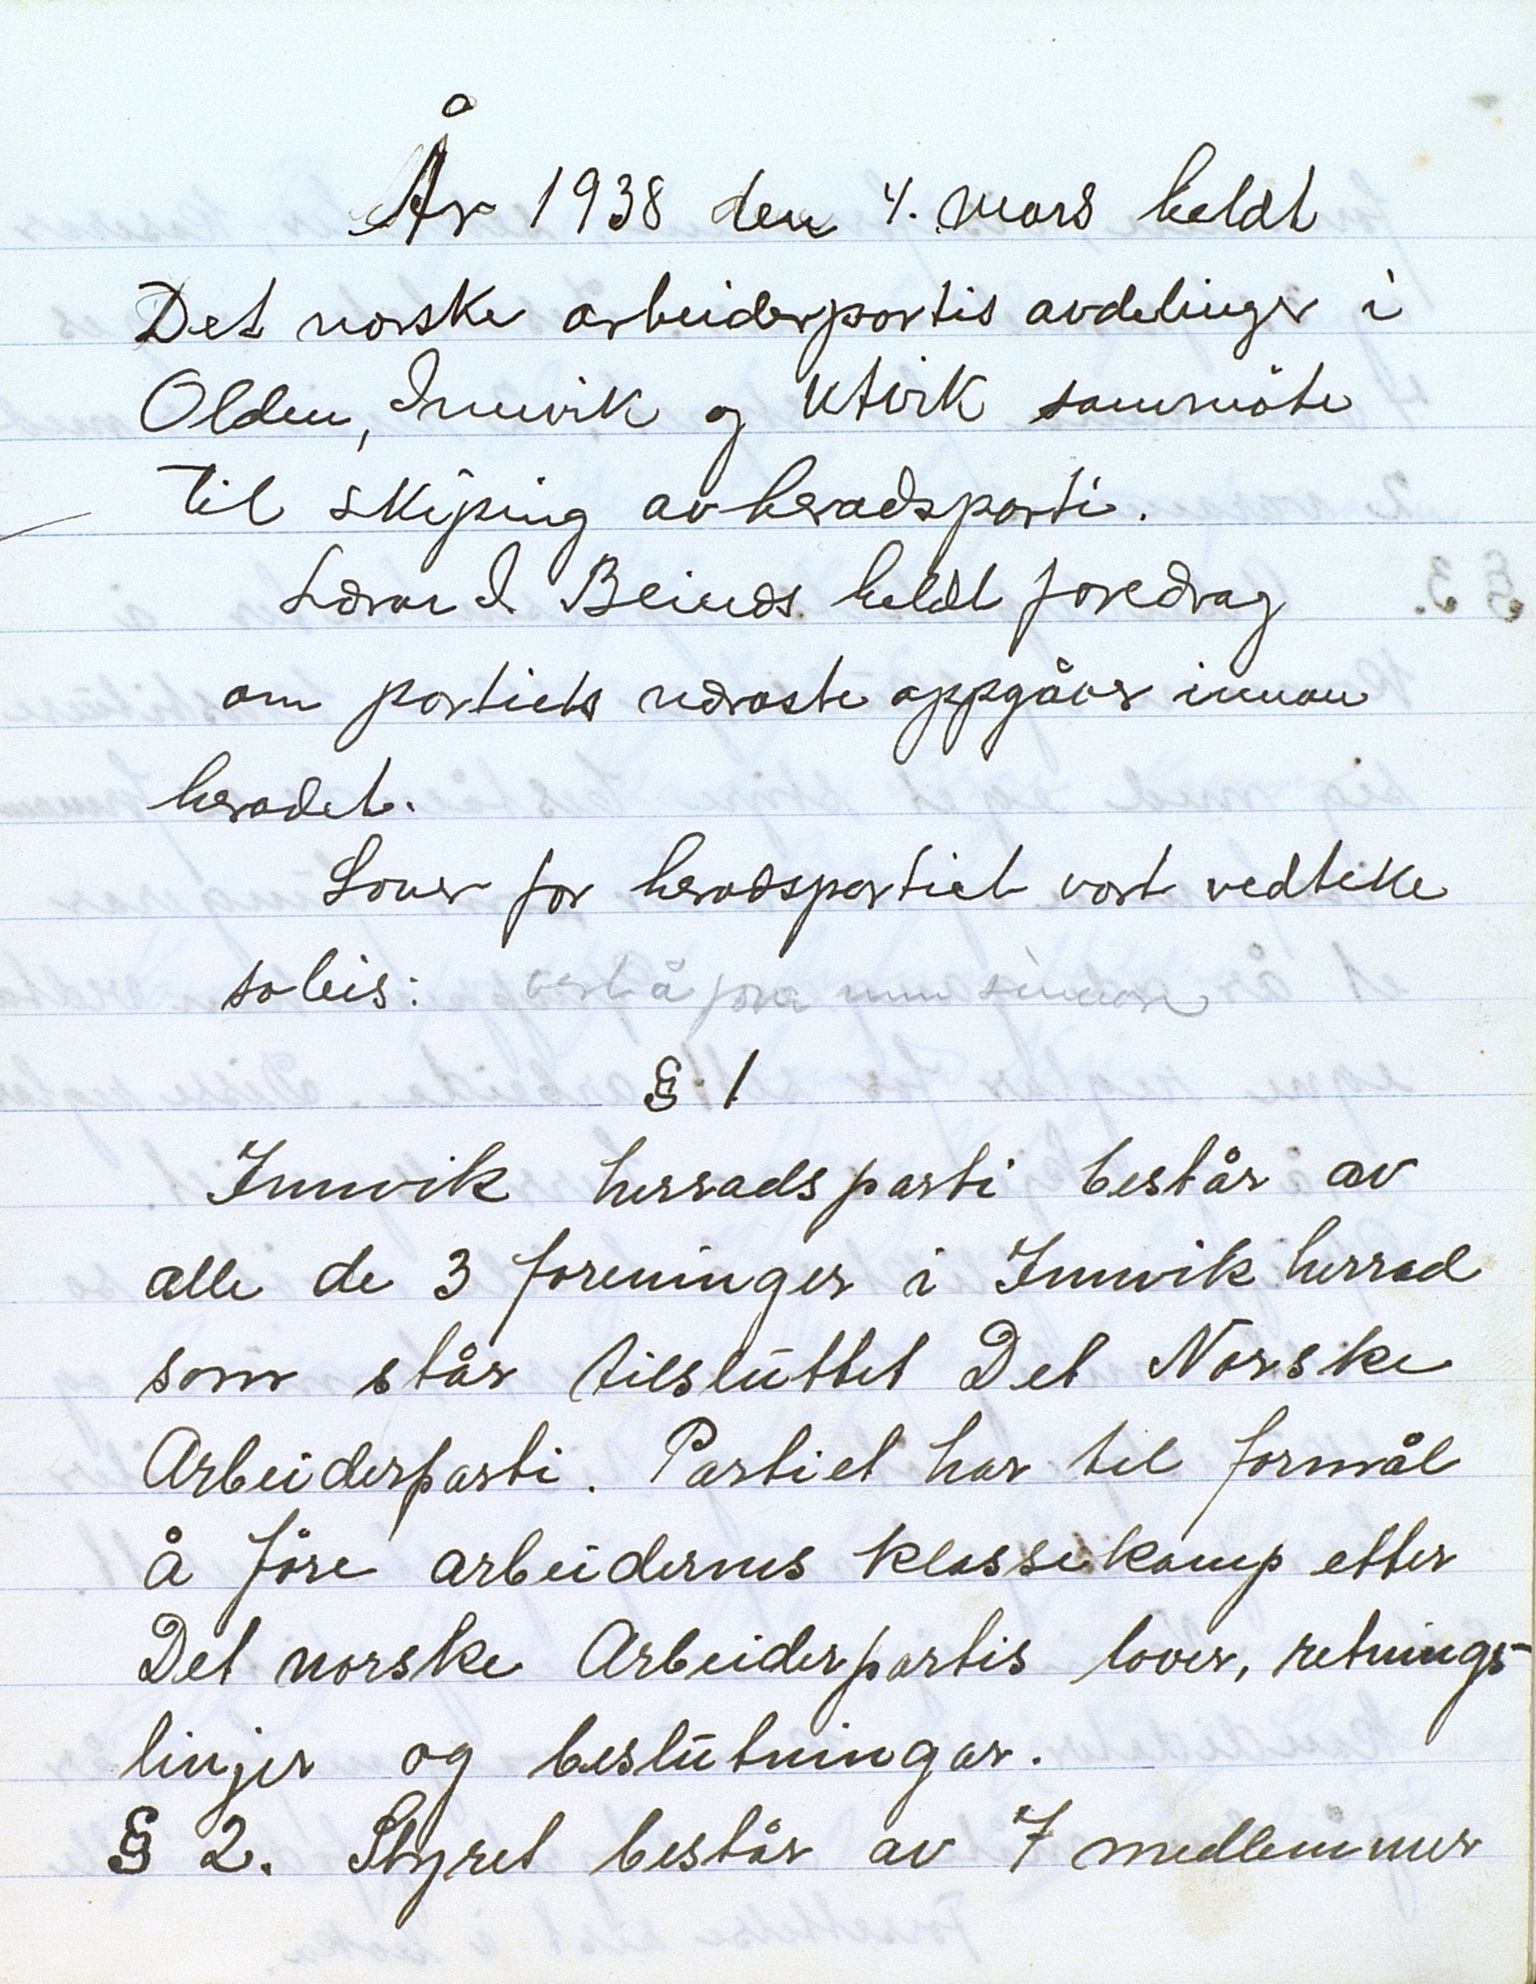 År 1938 den 4. mars heldt
Det norske arbeiderpartis avdelinger i
Olden, Innvik og Utvik sammöte
til skiping av heradsparti.
Lærar I Beinds heldt foredrag
om partiets næraste oppgåver innan
heradet.
Lover for heradspartiet vart vedteke
soleis:
§ 1
Innvik herradsparti består av
alle de 3 foreninger i Innvik herrad
som står tilsluttet Det Norske
Arbeiderparti. Partiet har til formål
å före arbeidernes klassekamp etter
Det norske Arbeiderpartis lover, retnings-
linjer og beslutningar.
§ 2. Styret består av 7 medlemmer